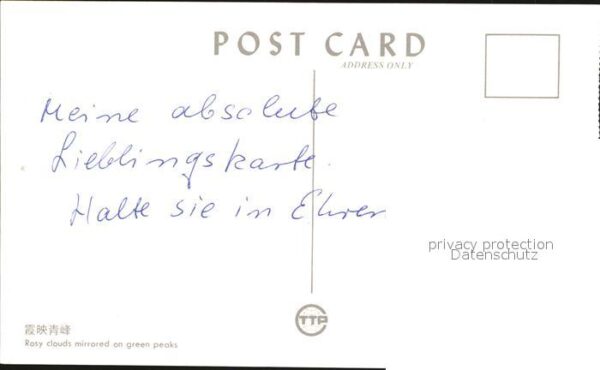 POST CARD
ADDRESS ONLY
Meine absolute
Lieblingskarte.
Halte sie in Ehren
privacy protection
Datenschutz
TTP
霞映青峰
Rosy clouds mirrored on green peaks